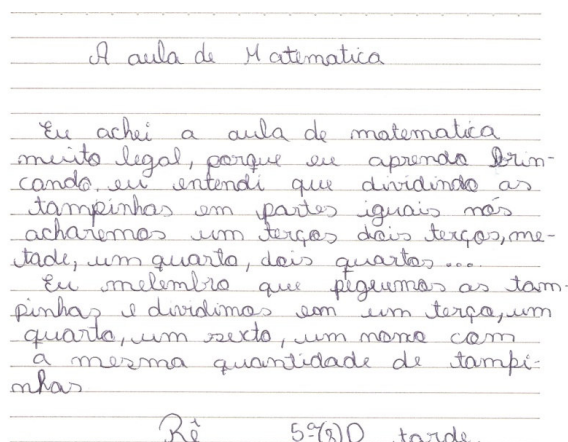 A aula de Matematica
Eu achei a aula de matematica
muito legal, porque eu aprendo brin-
cando, eu entendi que dividindo as
tampinhas em partes iguais nós
acharemos um terços dois terços, me-
tade, um quarto, dois quartos...
Eu melembro que pegeumos as tam-
pinhas e dividimos em um terço, um
quarto, um sexto, um nono com
a mesma quantidade de tampi-
nhas
Rê tarde